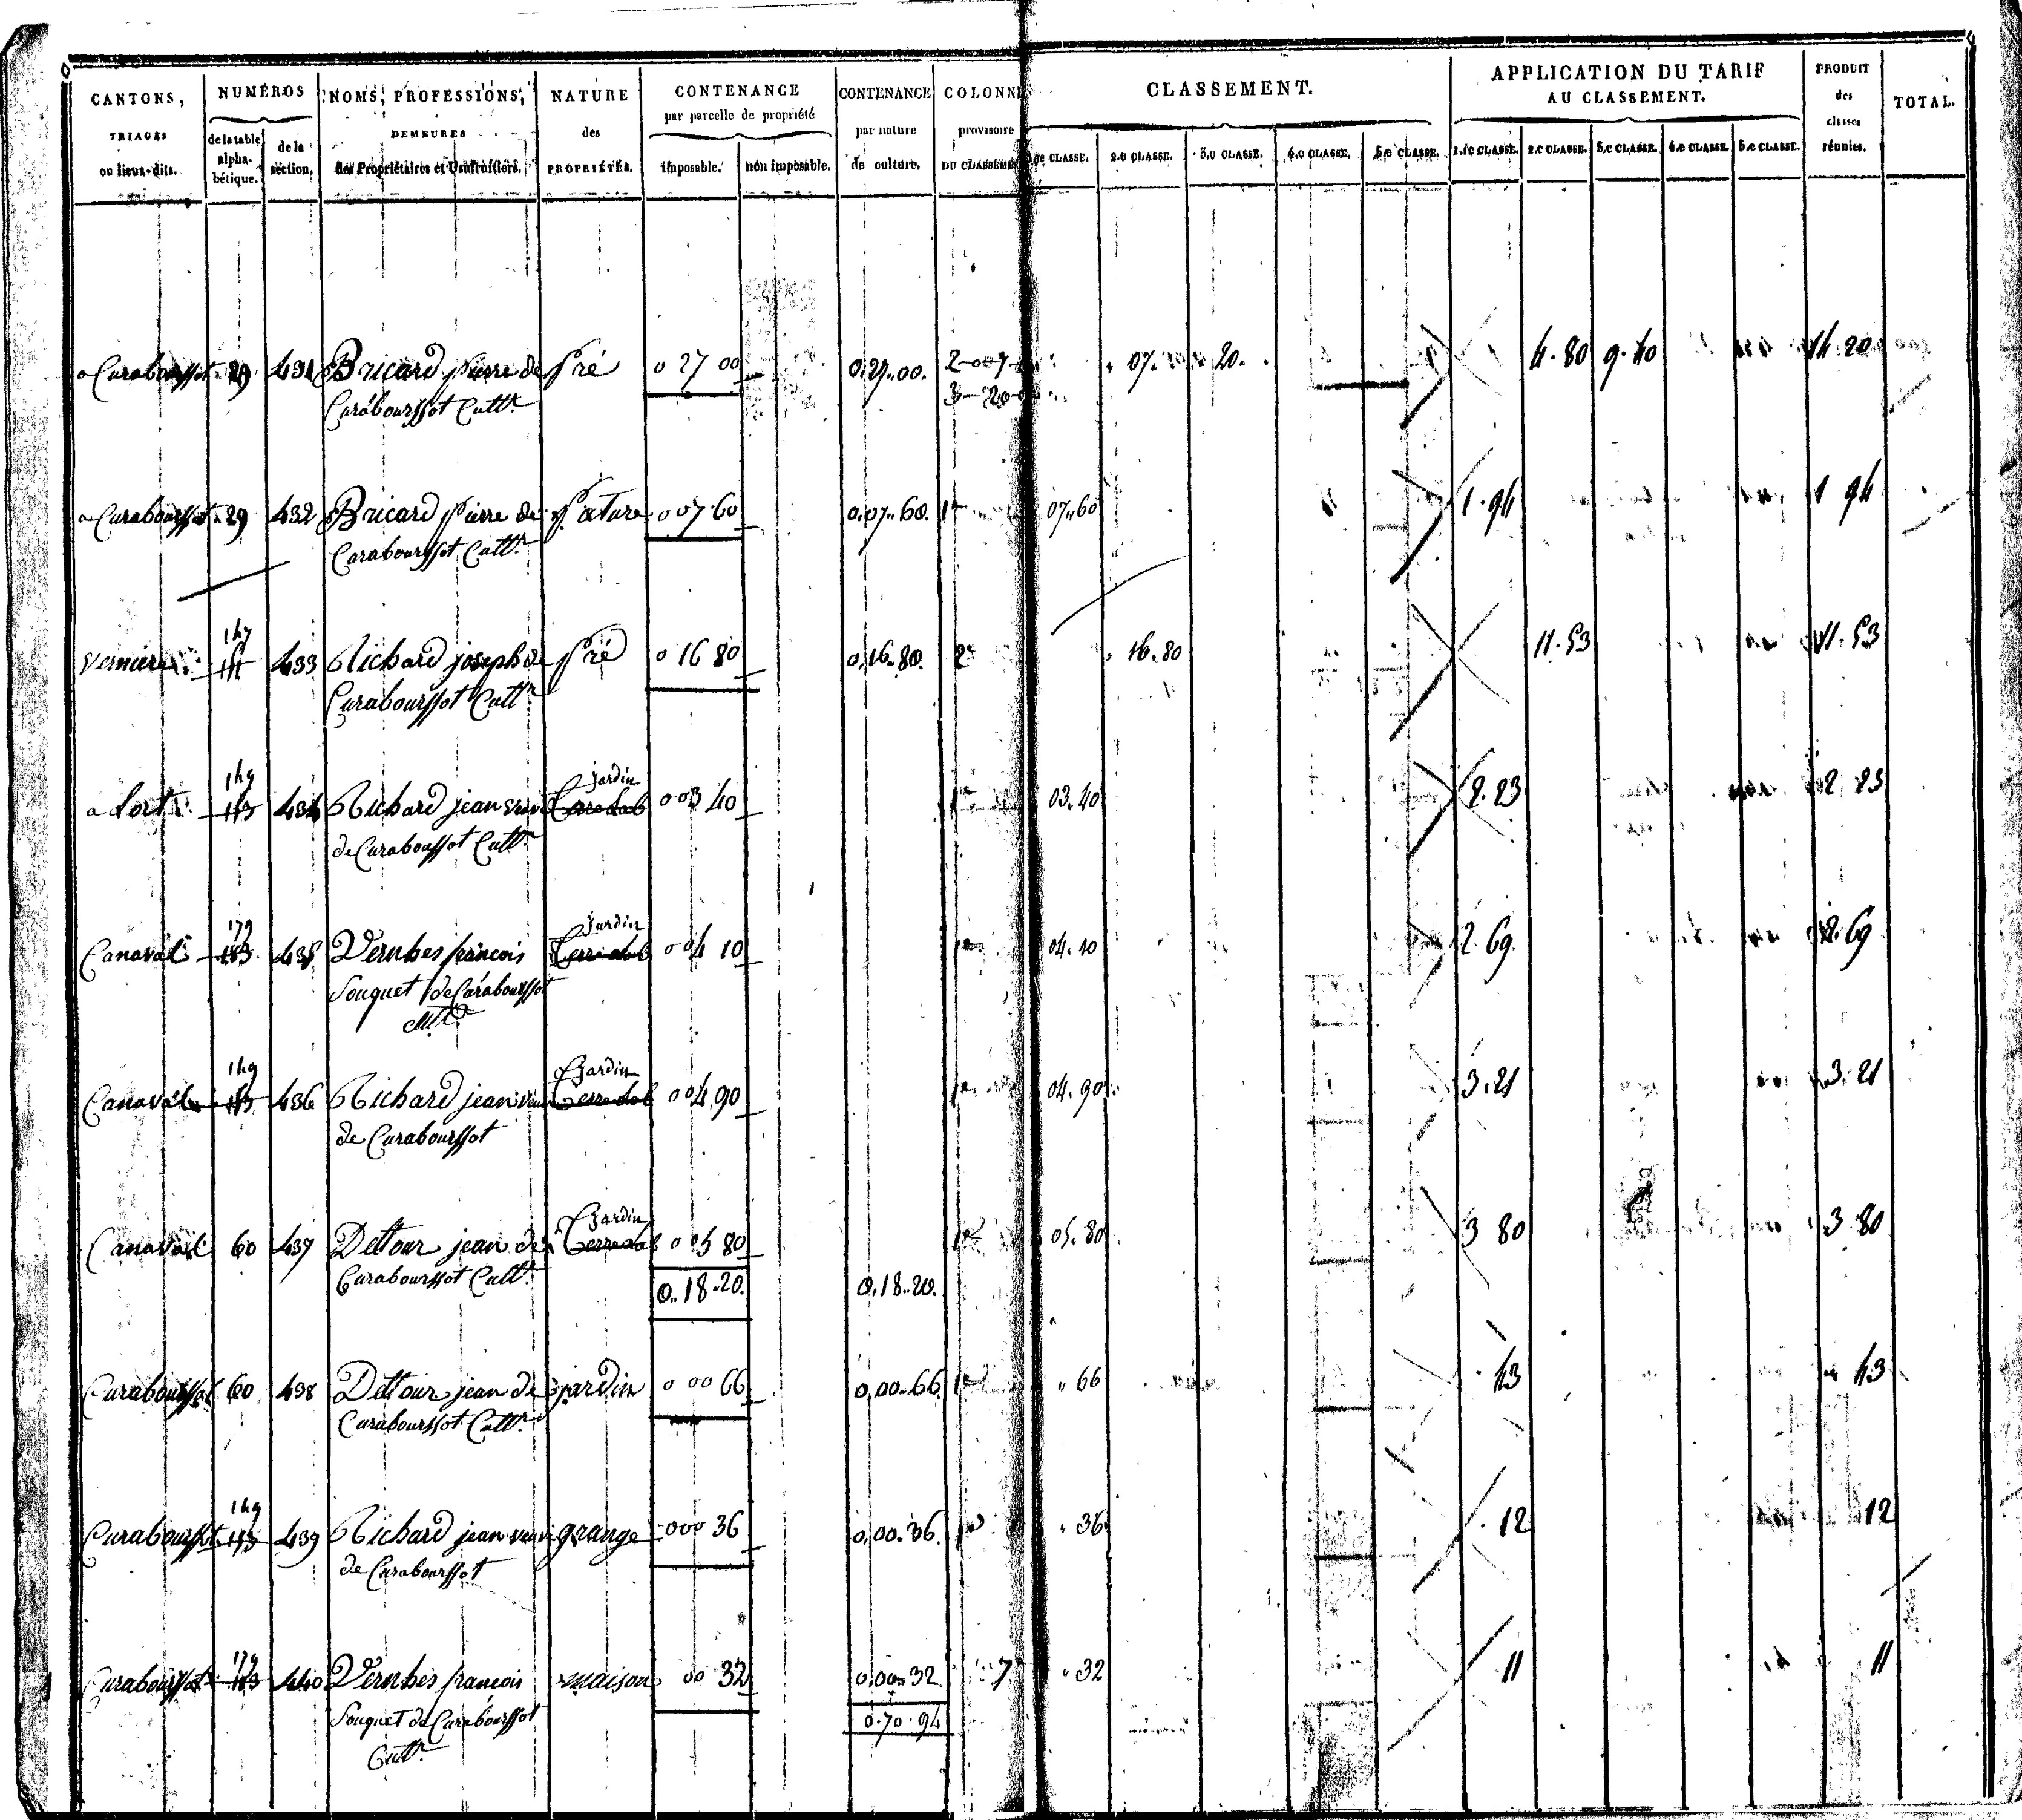 CANTONS, NUMÉROS NOMS, PROFESSIONS, NATURE CONTENANCE CONTENANCE COLONNE CLASSEMENT. APPLICATION DU TARIF PRODUIT TOTAL.
par parcelle de propriété AU CLASSEMENT. des
TRIAGES de la table de la DEMEURES des par nature provisoire classes
ou lieux-dits. alphabétique. section. des Propriétaires et Usufruitiers. PROPRIÉTÉS. imposable. non imposable. de culture. DU CLASSEMENT 1.re CLASSE. 2.e CLASSE. 3.e CLASSE. 4.e CLASSE. 5.e CLASSE. 1.re CLASSE. 2.e CLASSE. 3.e CLASSE. 4.e CLASSE. 5.e CLASSE. réunies.
a Curaboursot 29 431 Bricard pierre de Pré 0 27 00 0.27.00. 2-007 07. 20. 4.80 9.40 14 20
Curaboursot Cultr. 3-20
a Curaboursot 29 432 Bricard pierre de Pature 0 07 60 0.07.60. 1re 07.60 1.94 1 94
Curaboursot Cultr.
147
Verniere 433 Richard joseph de Pré 0 16 80 0.16.80. 2e 16.80 11.53 11.53
Curaboursot Cultr.
149 jardin
a Lort 113 434 Richard jean veuve Terre lab 0 03 40 03.40 2.23 2 23
de Curaboursot Cultr.
179 jardin
Canaval 183 435 Vernhes françois Terre lab 0 04 10 1re 04.10 2.69 2.69
Souquet de Curaboursot
149 jardin
Canaval 436 Richard jean veuve Terre lab 0 04 90 1re 04.90 3.21 3.21
de Curaboursot
jardin
Canaval 60 437 Dettour jean de Terre lab 0 05 80 1re 05.80 3 80 3 80
Curaboursot Cultr. 0..18..20. 0.18..20.
Curaboursot 60 438 Dettour jean de jardin 0 00 66 0.00.66 1re " 66 . 43 43
Curaboursot Cultr.
149
Curaboursot 439 Richard jean veuve grange 0 00 36 0.00.36. " 36 . 12 12
de Curaboursot
179
Curaboursot 440 Vernhes françois maison 00 32 0.00.32 7 " 32 . 11 11
Souquet de Curaboursot 0.70.94
Cultr.